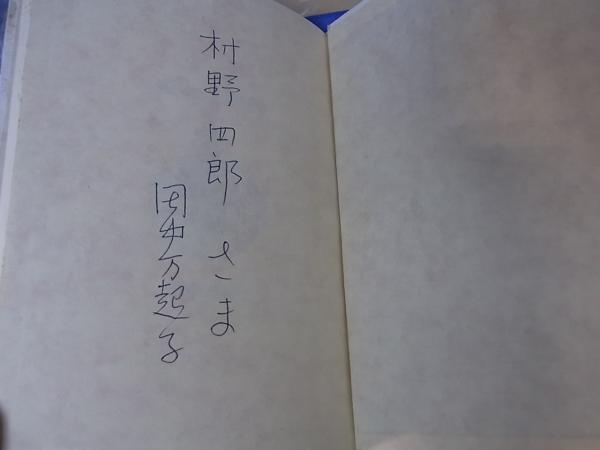 村野四郎 さま
万起子